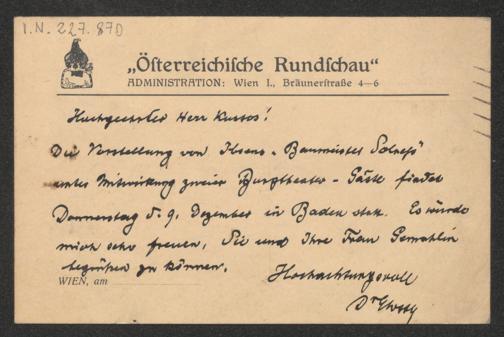 I.N. 227.870
„Österreichische Rundschau“
ADMINISTRATION: Wien I., Bräunerstraße 4—6
Hochgeehrter Herr Kustos!
Die Vorstellung von Ibsens „Baumeister Solneß“
unter Mitwirkung zweier Burgtheater-Gäste findet
Donnerstag d. 9. Dezember in Baden statt. Es würde
mich sehr freuen, Sie und Ihre Frau Gemahlin
begrüßen zu können.
Hochachtungsvoll
WIEN, am
Dr